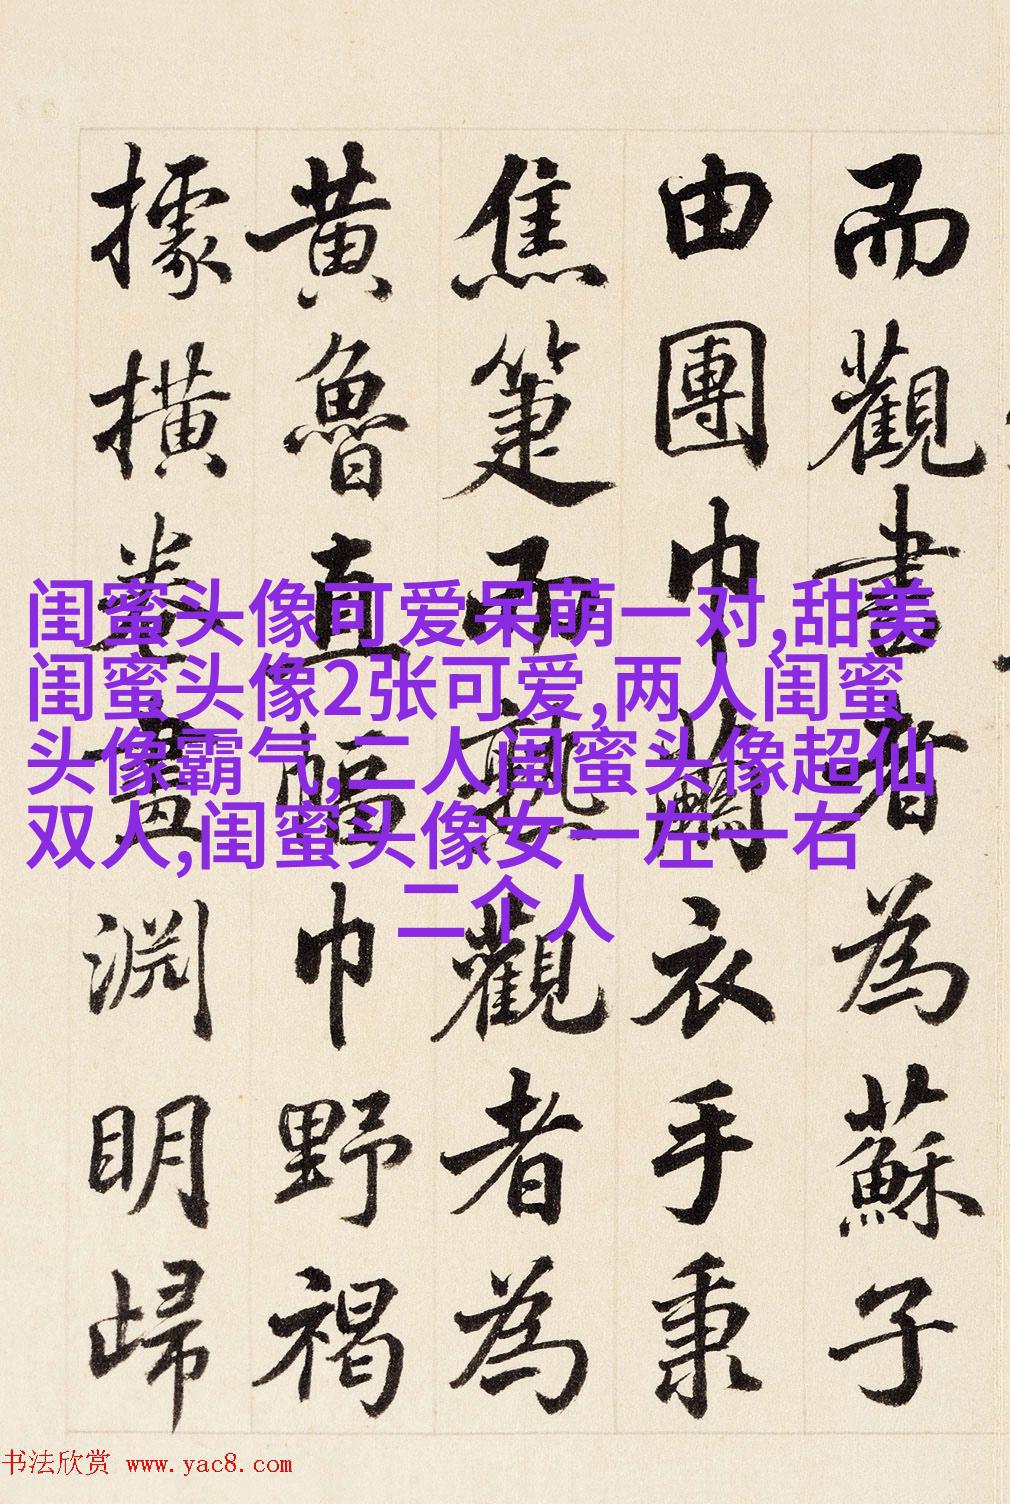 而觀書者為蘇子
由團巾繭衣手秉
焦箑而熟觀者為
黃魯直幅巾野褐
據橫卷畫淵明歸
闺蜜头像可爱呆萌一对,甜美
闺蜜头像2张可爱,两人闺蜜
头像霸气,二人闺蜜头像超仙
双人,闺蜜头像女一左一右
二个人
书法欣赏 www.yac8.com